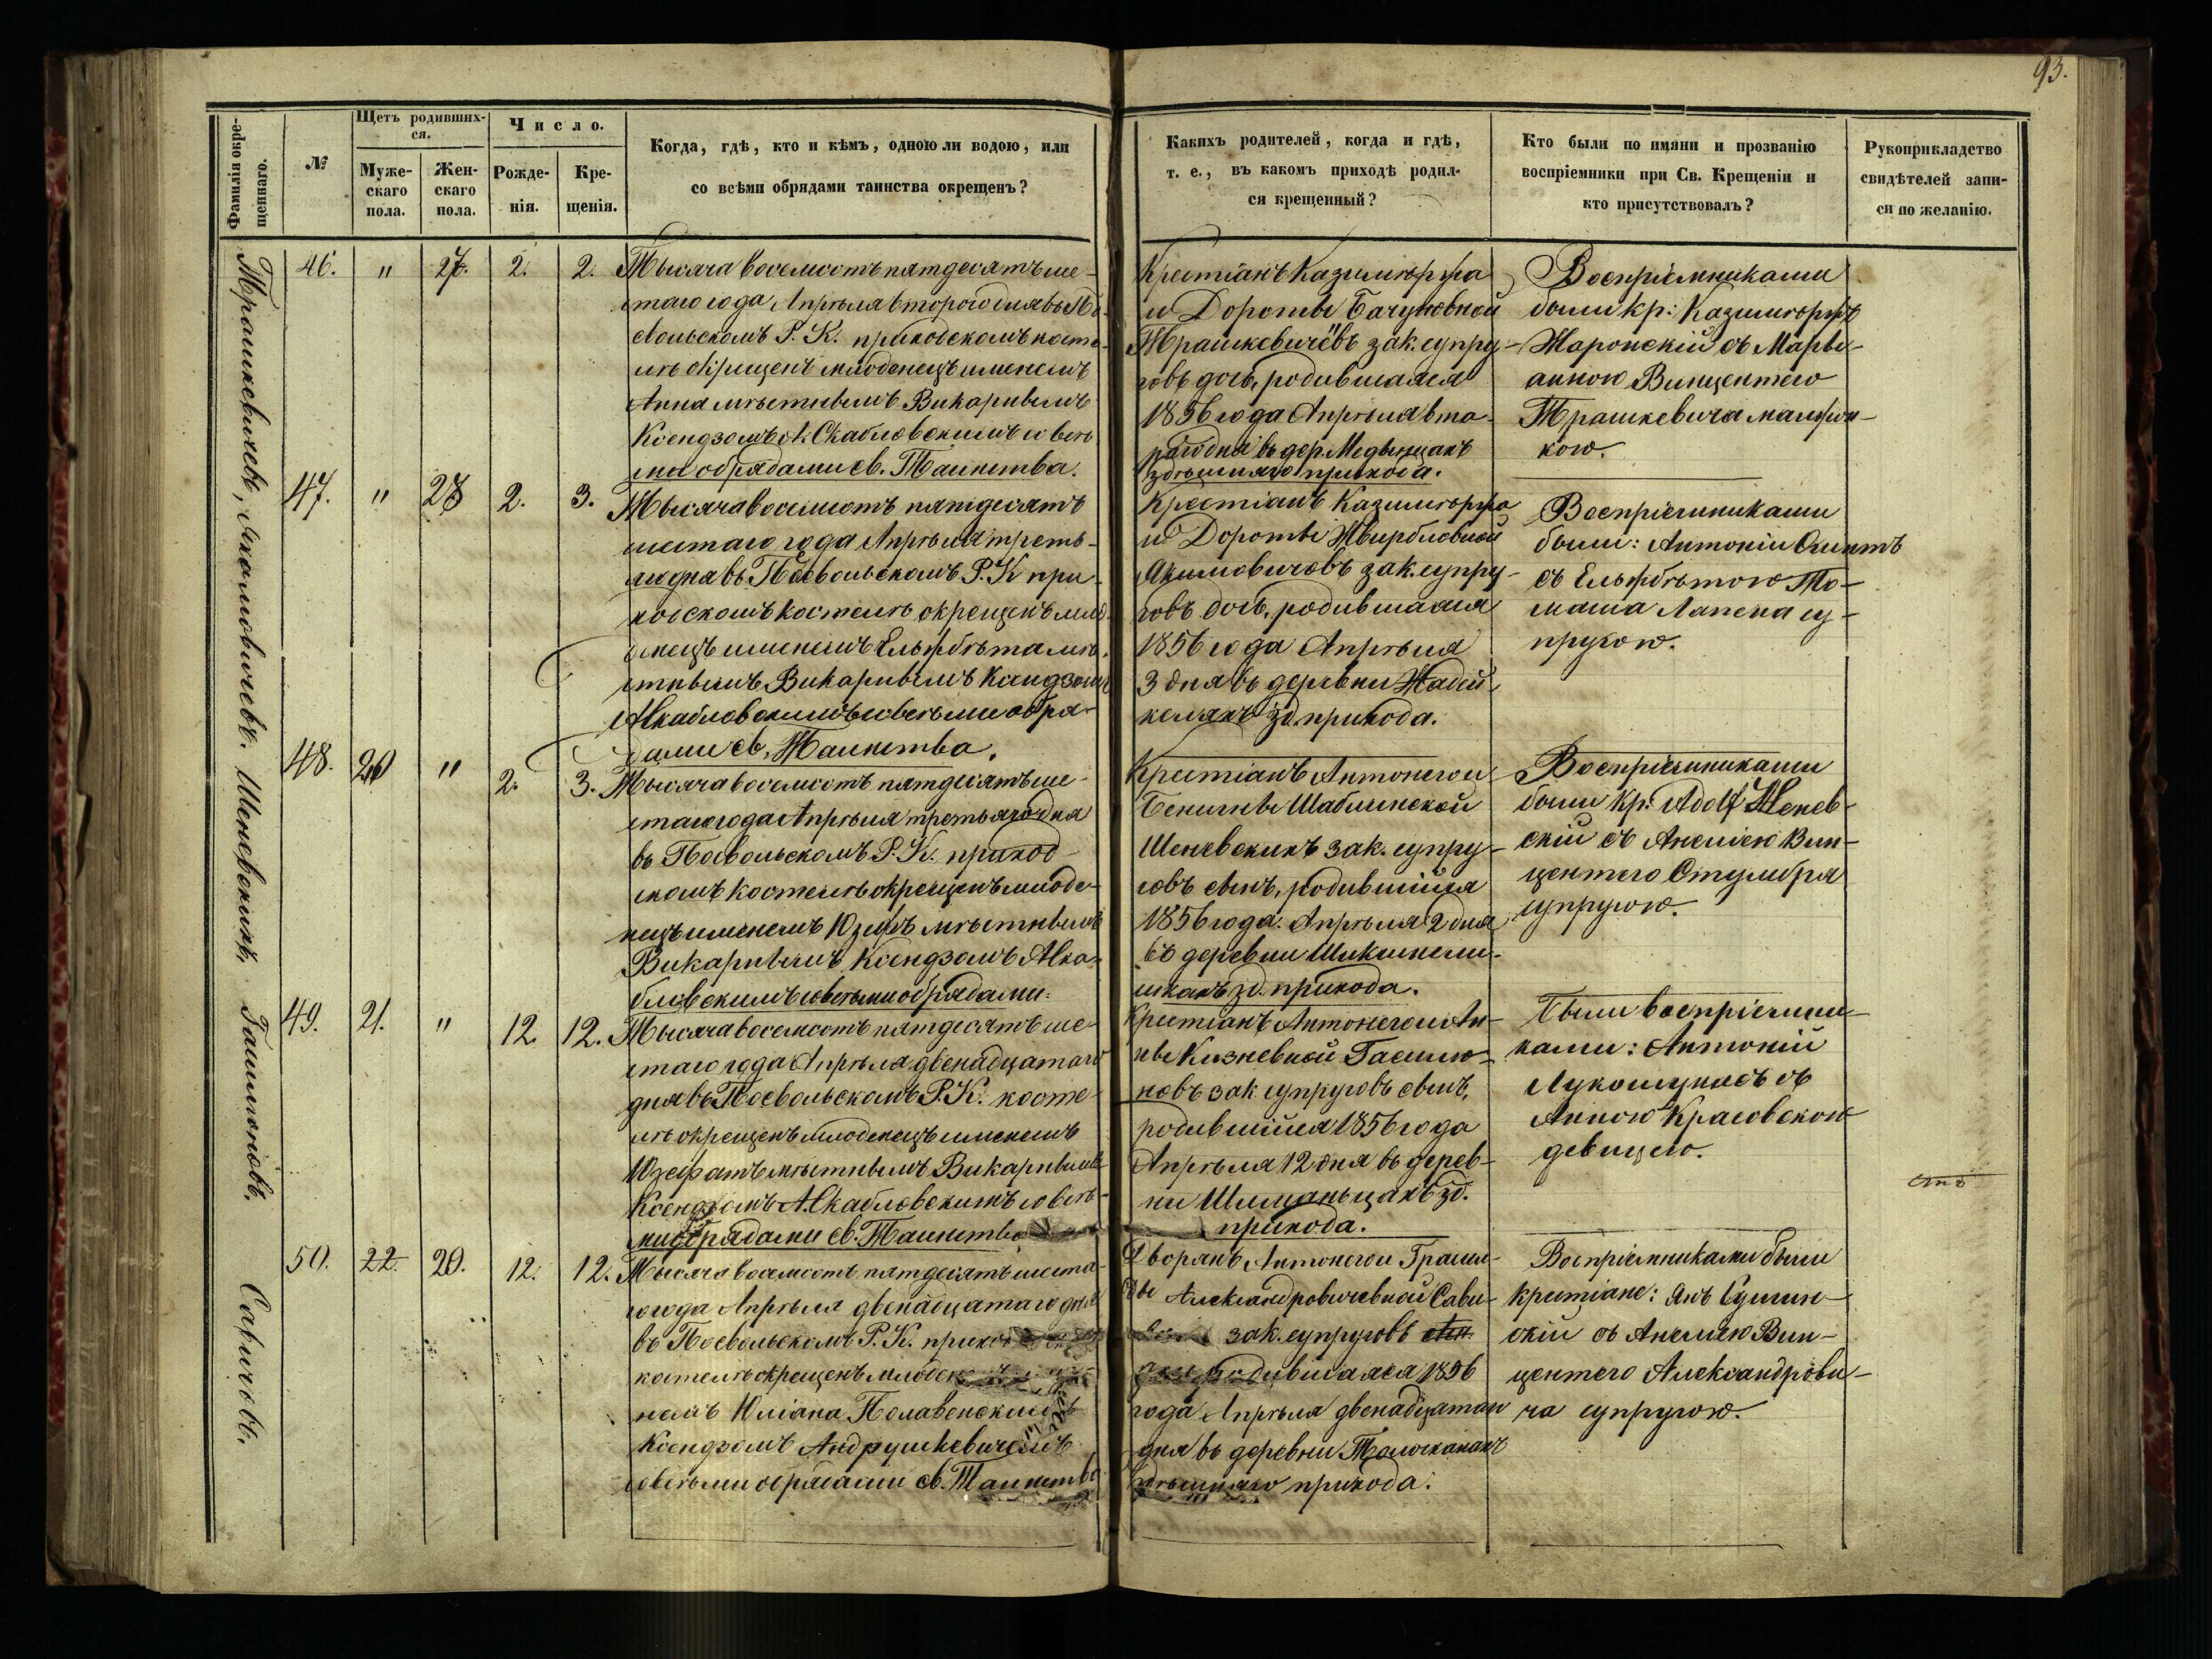 93.
Фамилія окре-
щеннаго.
№
Щетъ родивших-
ся.
Муже-
скаго
пола.
Жен-
скаго
пола.
Число.
Рожде-
нія.
Кре-
щенія.
Когда, гдѣ, кто и кѣмъ, одною ли водою, или
со всѣми обрядами таинства окрещенъ?
Какихъ родителей, когда и гдѣ,
т. е., въ какомъ приходѣ родил-
ся крещенный?
Кто были по имяни и прозванію
воспріемники при Св. Крещеніи и
кто присутствовалъ?
Рукоприкладство
свидѣтелей запи-
си по желанію.
Трашкевичевъ,
46. " 27. 2. 2.
Тысяча восемсотъ пятдесятъ ше-
стаго года Апрѣля второго дня въ По-
свольскомъ Р. К. приходскомъ косте-
лѣ окрещенъ младенецъ именемъ
Анна мѣстнымъ Викарнымъ
Ксендзомъ А. Скабловскимъ со всѣ-
ми обрядами св. Таинства.
Крестіанъ Казимѣржа
и Дороты Бачуновной
Трашкевичёвъ зак. супру-
говъ дочь, родившаяся
1856 года Апрѣля вто-
раго дня въ дер.
здѣшняго прихода.
Воспріемниками
были кр: Казимѣржъ
Жаронскій съ Марьі-
анною Винцентего
Трашкевича малжон-
кою.
Якимовичевъ.
47. " 28 2. 3.
Тысяча восемсотъ пятдесятъ
шестаго года Апрѣля треть-
яго дня въ Посвольскомъ Р. К при-
ходскомъ костелѣ окрещенъ мла-
денецъ именемъ Ельжбѣта мѣ-
стнымъ Викарнымъ Ксендзомъ
А Скабловскимъ со всѣми обря-
дами св. Таинства.
Крестіанъ Казимѣржа
и Дороты Жвирбловной
Якимовичовъ зак. супру-
говъ дочь, родившаяся
1856 года Апрѣля
3 дня въ деревни
зд. прихода.
Воспріемниками
были: Антоній
съ Ельжбѣтою То-
маша Лапена су-
пругою.
Шеневскихъ,
48. 20 " 2. 3.
Тысяча восемсотъ пятдесятъ ше-
стаго года Апрѣля третьяго дня
въ Посвольскомъ Р. К. приход-
скомъ костелѣ окрещенъ младе-
нецъ именемъ Юзефъ мѣстнымъ
Викарнымъ Ксендзомъ А Ска-
бловскимъ со всѣми обрядами.
Крестіанъ Антонего и
Бенигны Шаблинской
Шеневскихъ зак. супру-
говъ сынъ, родившійся
1856 года. Апрѣля 2 дня
въ деревни
зд. прихода.
Воспріемниками
были кр: Адолf Шенев-
скій съ Анелiею Вин-
центего
супругою.
Гасшюновъ,
49. 21. " 12. 12.
Тысяча восемсотъ пятдесятъ ше-
стаго года Апрѣля двенадцатаго
дня въ Посвольскомъ Р. К. косте-
лѣ окрещенъ младенецъ именемъ
Юзефатъ мѣстнымъ Викарнымъ
Ксендзомъ А. Скабловскимъ со всѣ-
ми обрядами св. Таинства
Крестіанъ Антонего и Ан-
ны Кизневной Гасшю-
новъ зак супруговъ сынъ,
родившійся 1856 года
Апрѣля 12 дня въ дерев-
ни Шиманьцахъ зд.
прихода.
Были воспріемни-
ками: Антоній
Лукошунасъ съ
Анною Красовскою
девицею.
Савичовъ.
50. 22. 29. 12. 12.
Тысяча восемсотъ пятдесятъ шеста-
го года Апрѣля двенадцатаго дня
въ Посвольскомъ Р. К.
костелѣ окрещенъ
немъ Юліана
Ксендзомъ Андрушкевичемъ
со всѣми обрядами св. Таинства
Дворянъ Антонего и Грасил-
ды Александровичевной Сави-
зак. супруговъ
родившаяся 1856
года Апрѣля двенадцатаго
дня въ деревни
здѣшняго прихода.
Воспріемниками были
крестіане: Янъ
скій съ Анелiею Вин-
центего Александрови-
ча супругою.